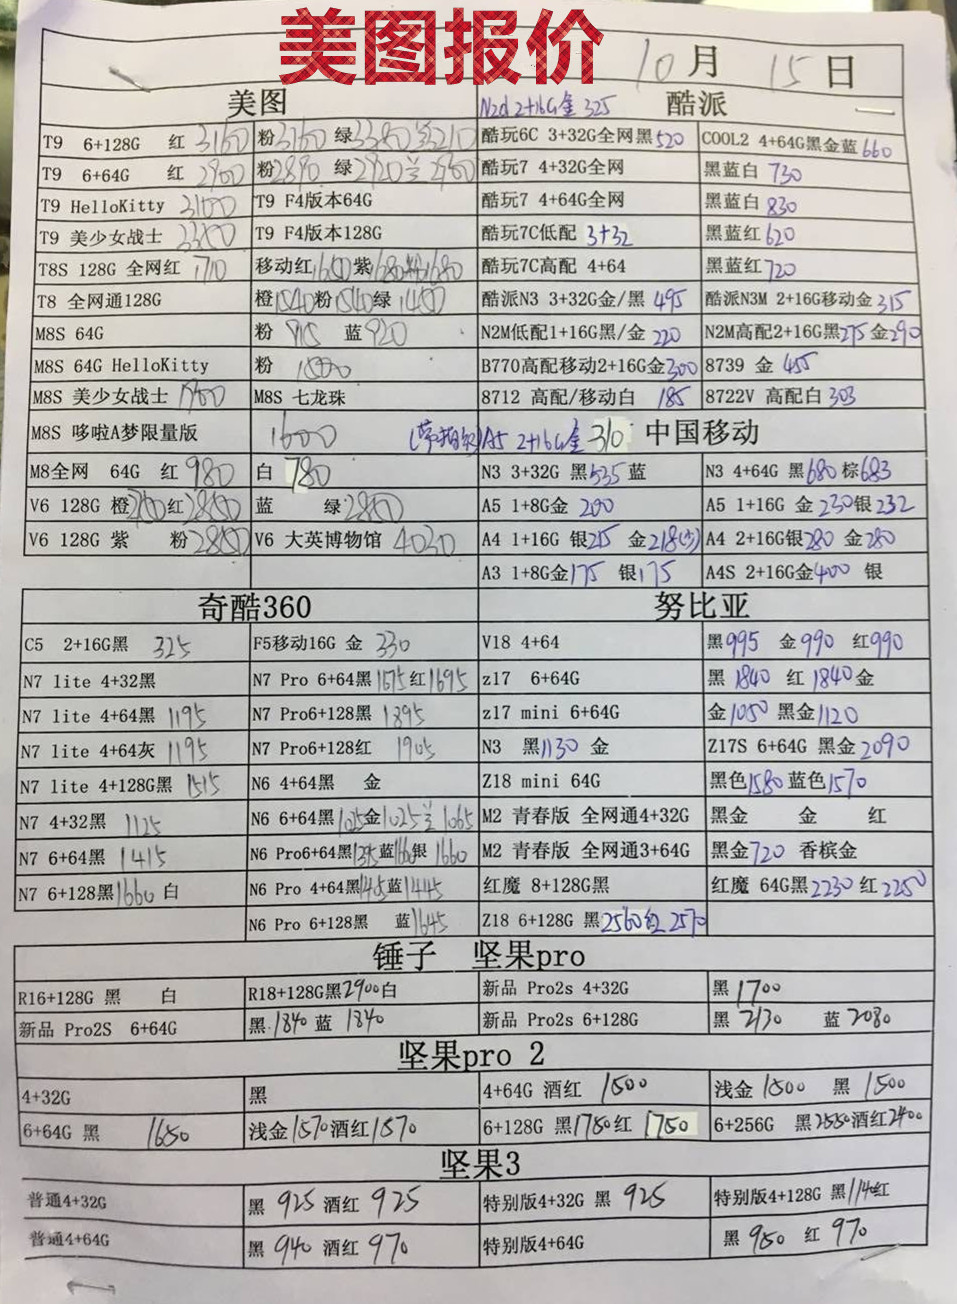 美图报价
10月 15日
美图 N2d 2+16G金 325 酷派
T9 6+128G 红 3160 粉3160 绿3380 兰3210 酷玩6C 3+32G全网黑520 COOL2 4+64G黑金蓝660
T9 6+64G 红 粉2890 绿 2920兰 酷玩7 4+32G全网 黑蓝白 730
T9 HelloKitty 3100 T9 F4版本64G 酷玩7 4+64G全网 黑蓝白 830
T9 美少女战士 T9 F4版本128G 酷玩7C低配 3+32 黑蓝红620
T8S 128G 全网红 1710 移动红1600紫1680粉1680 酷玩7C高配 4+64 黑蓝红720
T8 全网通128G 橙1540粉1540绿 1450 酷派N3 3+32G金/黑 495 酷派N3M 2+16G移动金315
M8S 64G 粉 915 蓝 920 N2M低配1+16G黑/金 220 N2M高配2+16G黑275金290
M8S 64G HelloKitty 粉 B770高配移动2+16G金300 8739 金 455
M8S 美少女战士 M8S 七龙珠 8712 高配/移动白 185 8722V 高配白 303
M8S 哆啦A梦限量版 1600 A5 2+16G金 310 中国移动
M8全网 64G 红 980 白 780 N3 3+32G 黑535蓝 N3 4+64G 黑680棕683
V6 128G 橙 红2800 蓝 绿2800 A5 1+8G金 200 A5 1+16G 金 230银232
V6 128G 紫 粉2800 V6 大英博物馆 4030 A4 1+16G 银215 金218 A4 2+16G银280 金280
A3 1+8G金175 银175 A4S 2+16G金400 银
奇酷360 努比亚
C5 2+16G黑 325 F5移动16G 金 330 V18 4+64 黑995 金990 红990
N7 lite 4+32黑 N7 Pro 6+64黑1675红1695 z17 6+64G 黑 1840 红 1840金
N7 lite 4+64黑 1195 N7 Pro6+128黑 1895 z17 mini 6+64G 金1050 黑金1120
N7 lite 4+64灰 1195 N7 Pro6+128红 1905 N3 黑1130 金 Z17S 6+64G 黑金2090
N7 lite 4+128G黑 1515 N6 4+64黑 金 Z18 mini 64G 黑色1580蓝色1570
N7 4+32黑 1125 N6 6+64黑1025金1025兰 1065 M2 青春版 全网通4+32G 黑金 金 红
N7 6+64黑 1415 N6 Pro6+64黑1395蓝1660银 1660 M2 青春版 全网通3+64G 黑金720 香槟金
N7 6+128黑1660 白 N6 Pro 4+64黑1445蓝1445 红魔 8+128G黑 红魔 64G黑2230红2250
N6 Pro 6+128黑 蓝1645 Z18 6+128G 黑2560红2570
锤子 坚果pro
R16+128G 黑 白 R18+128G黑2900白 新品 Pro2s 4+32G 黑1700
新品 Pro2S 6+64G 黑 1840 蓝 1840 新品 Pro2s 6+128G 黑 2130 蓝 2080
坚果pro 2
4+32G 黑 4+64G 酒红 1500 浅金 1500 黑 1500
6+64G 黑 1650 浅金1570酒红1570 6+128G 黑1750红 1750 6+256G 黑2550酒红2400
坚果3
普通4+32G 黑 925 酒红 925 特别版4+32G 黑 925 特别版4+128G 黑1140红
普通4+64G 黑 940 酒红 970 特别版4+64G 黑 950 红 970